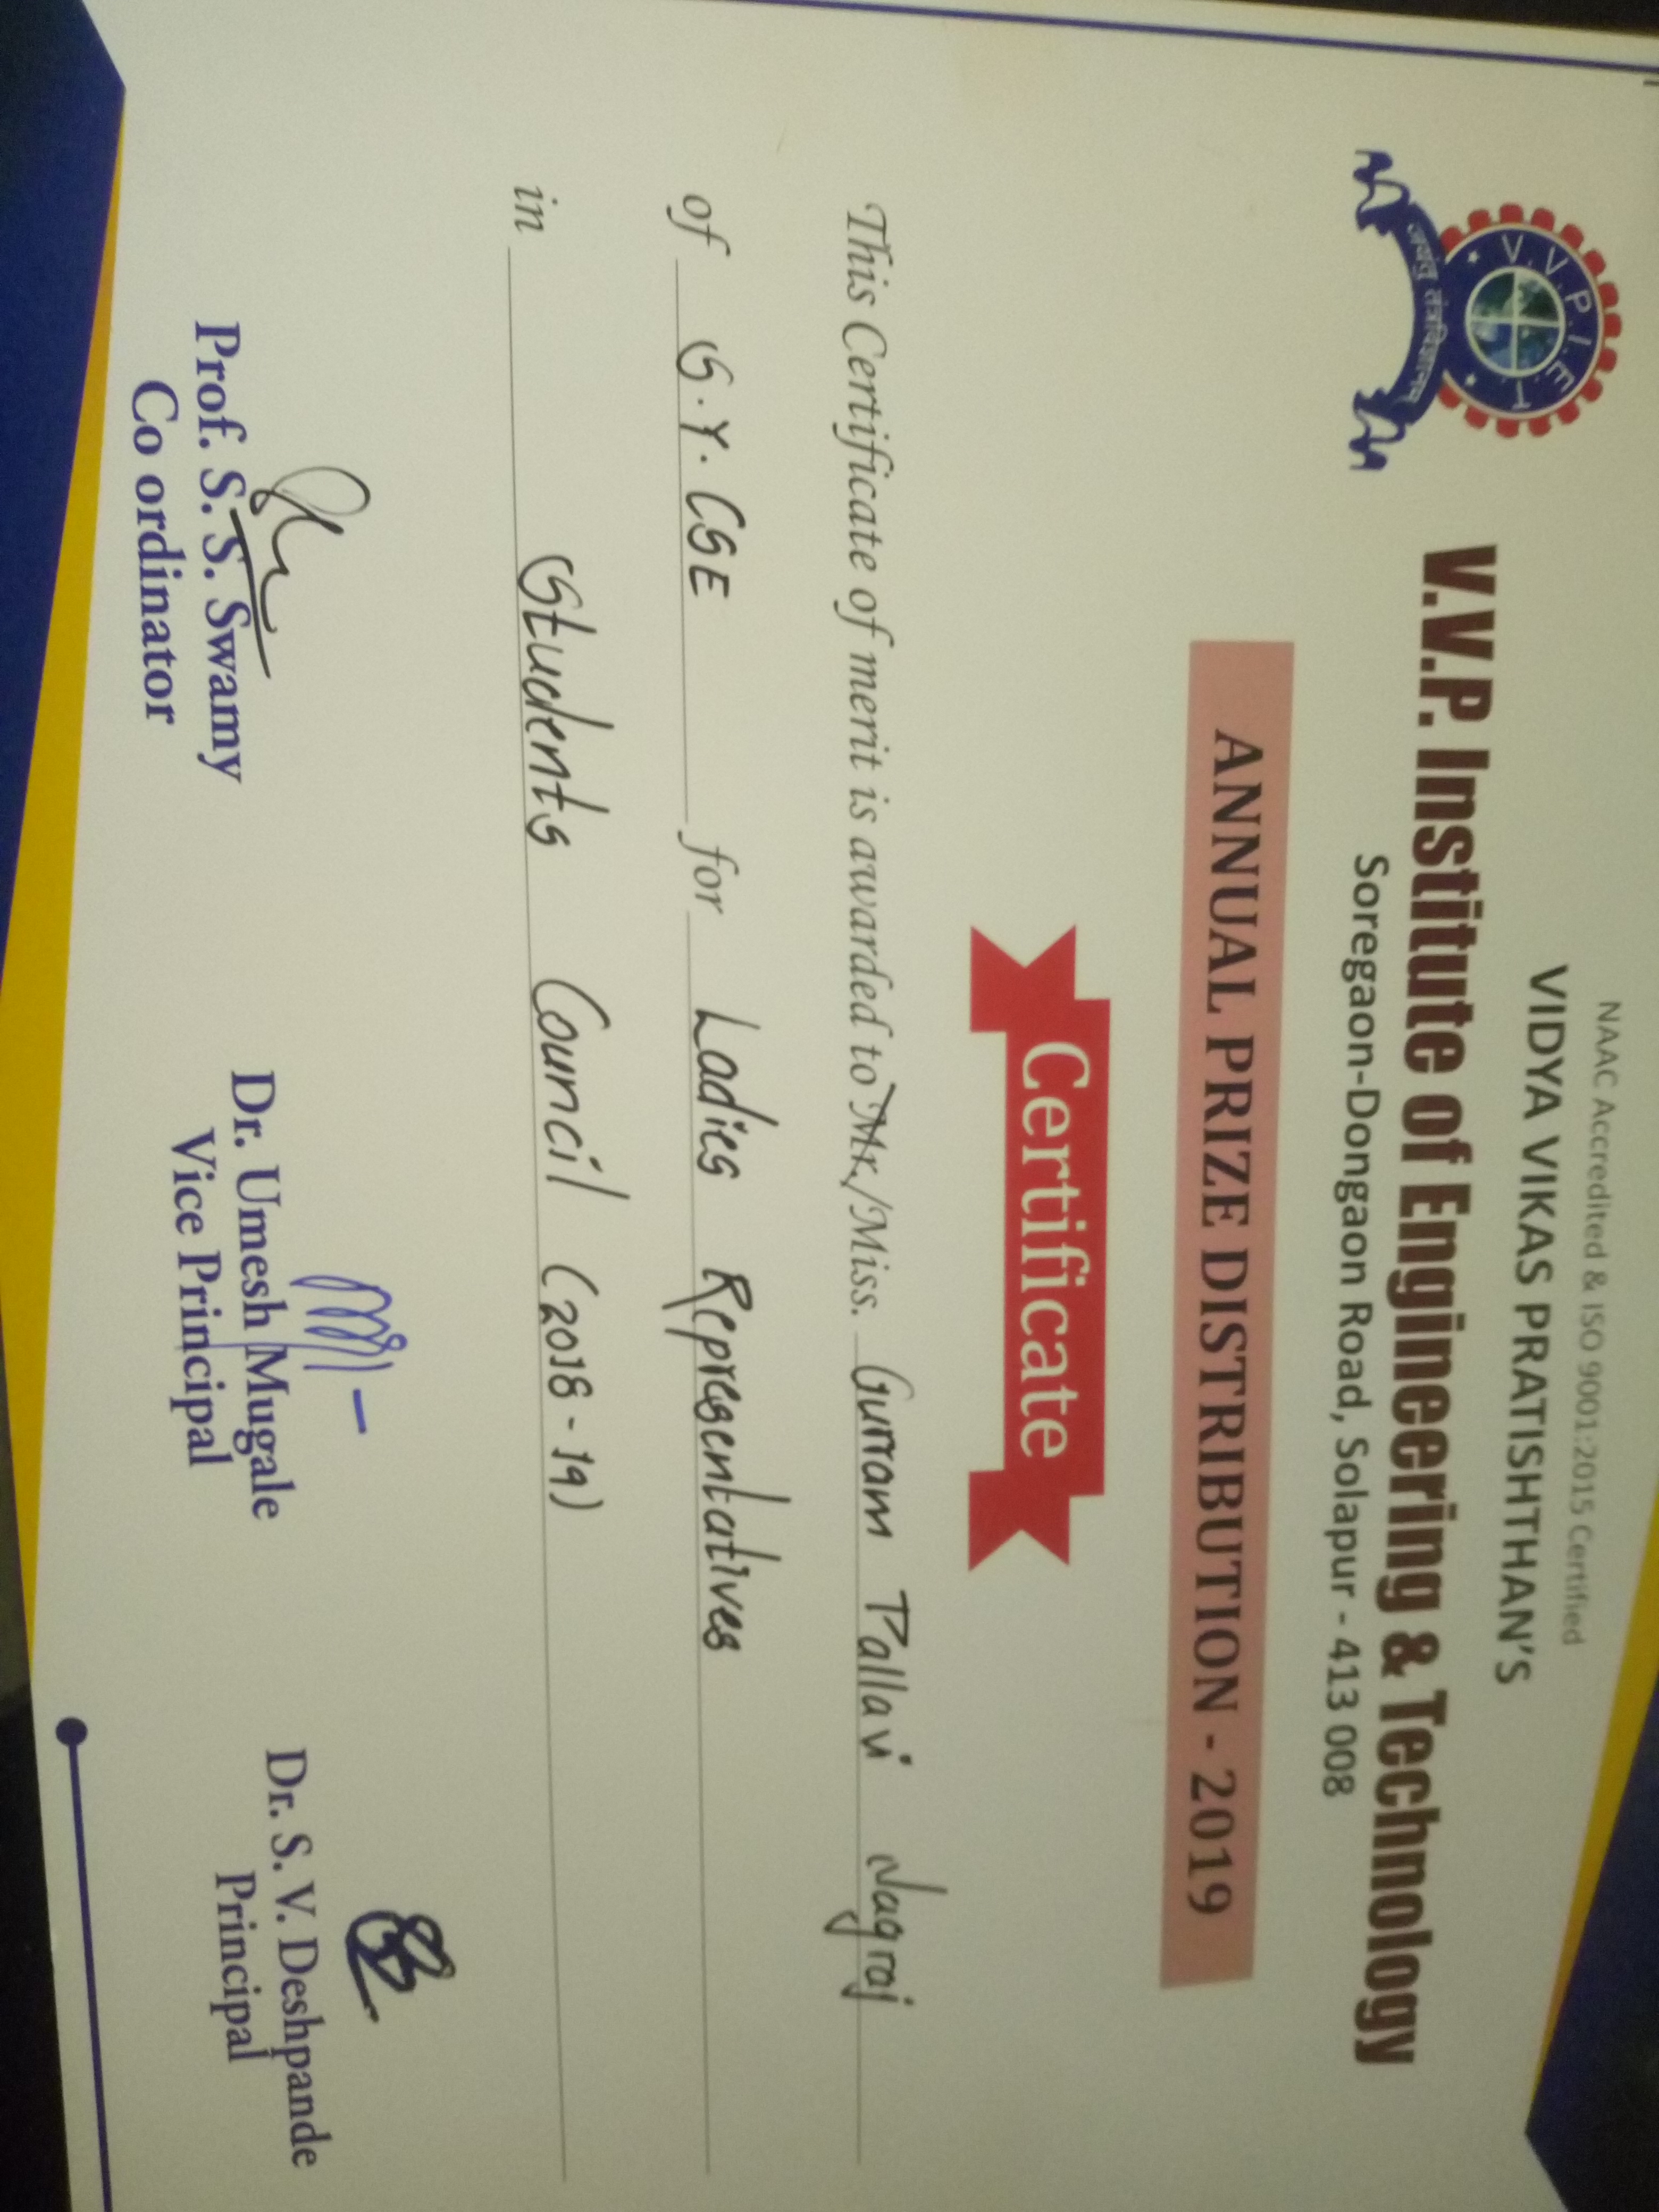 V.V.P.I.E.T.
जयंतु तंत्रविज्ञानम्
NAAC Accredited & ISO 9001:2015 Certified
VIDYA VIKAS PRATISHTHAN'S
V.V.P. Institute of Engineering & Technology
Soregaon-Dongaon Road, Solapur - 413 008
ANNUAL PRIZE DISTRIBUTION - 2019
Certificate
This Certificate of merit is awarded to Mr./Miss. Gurram Pallavi Nagraj
of S.Y. CSE for Ladies Representatives
in Students Council (2018-19)
Prof. S. S. Swamy
Co ordinator
Dr. Umesh Mugale
Vice Principal
Dr. S. V. Deshpande
Principal